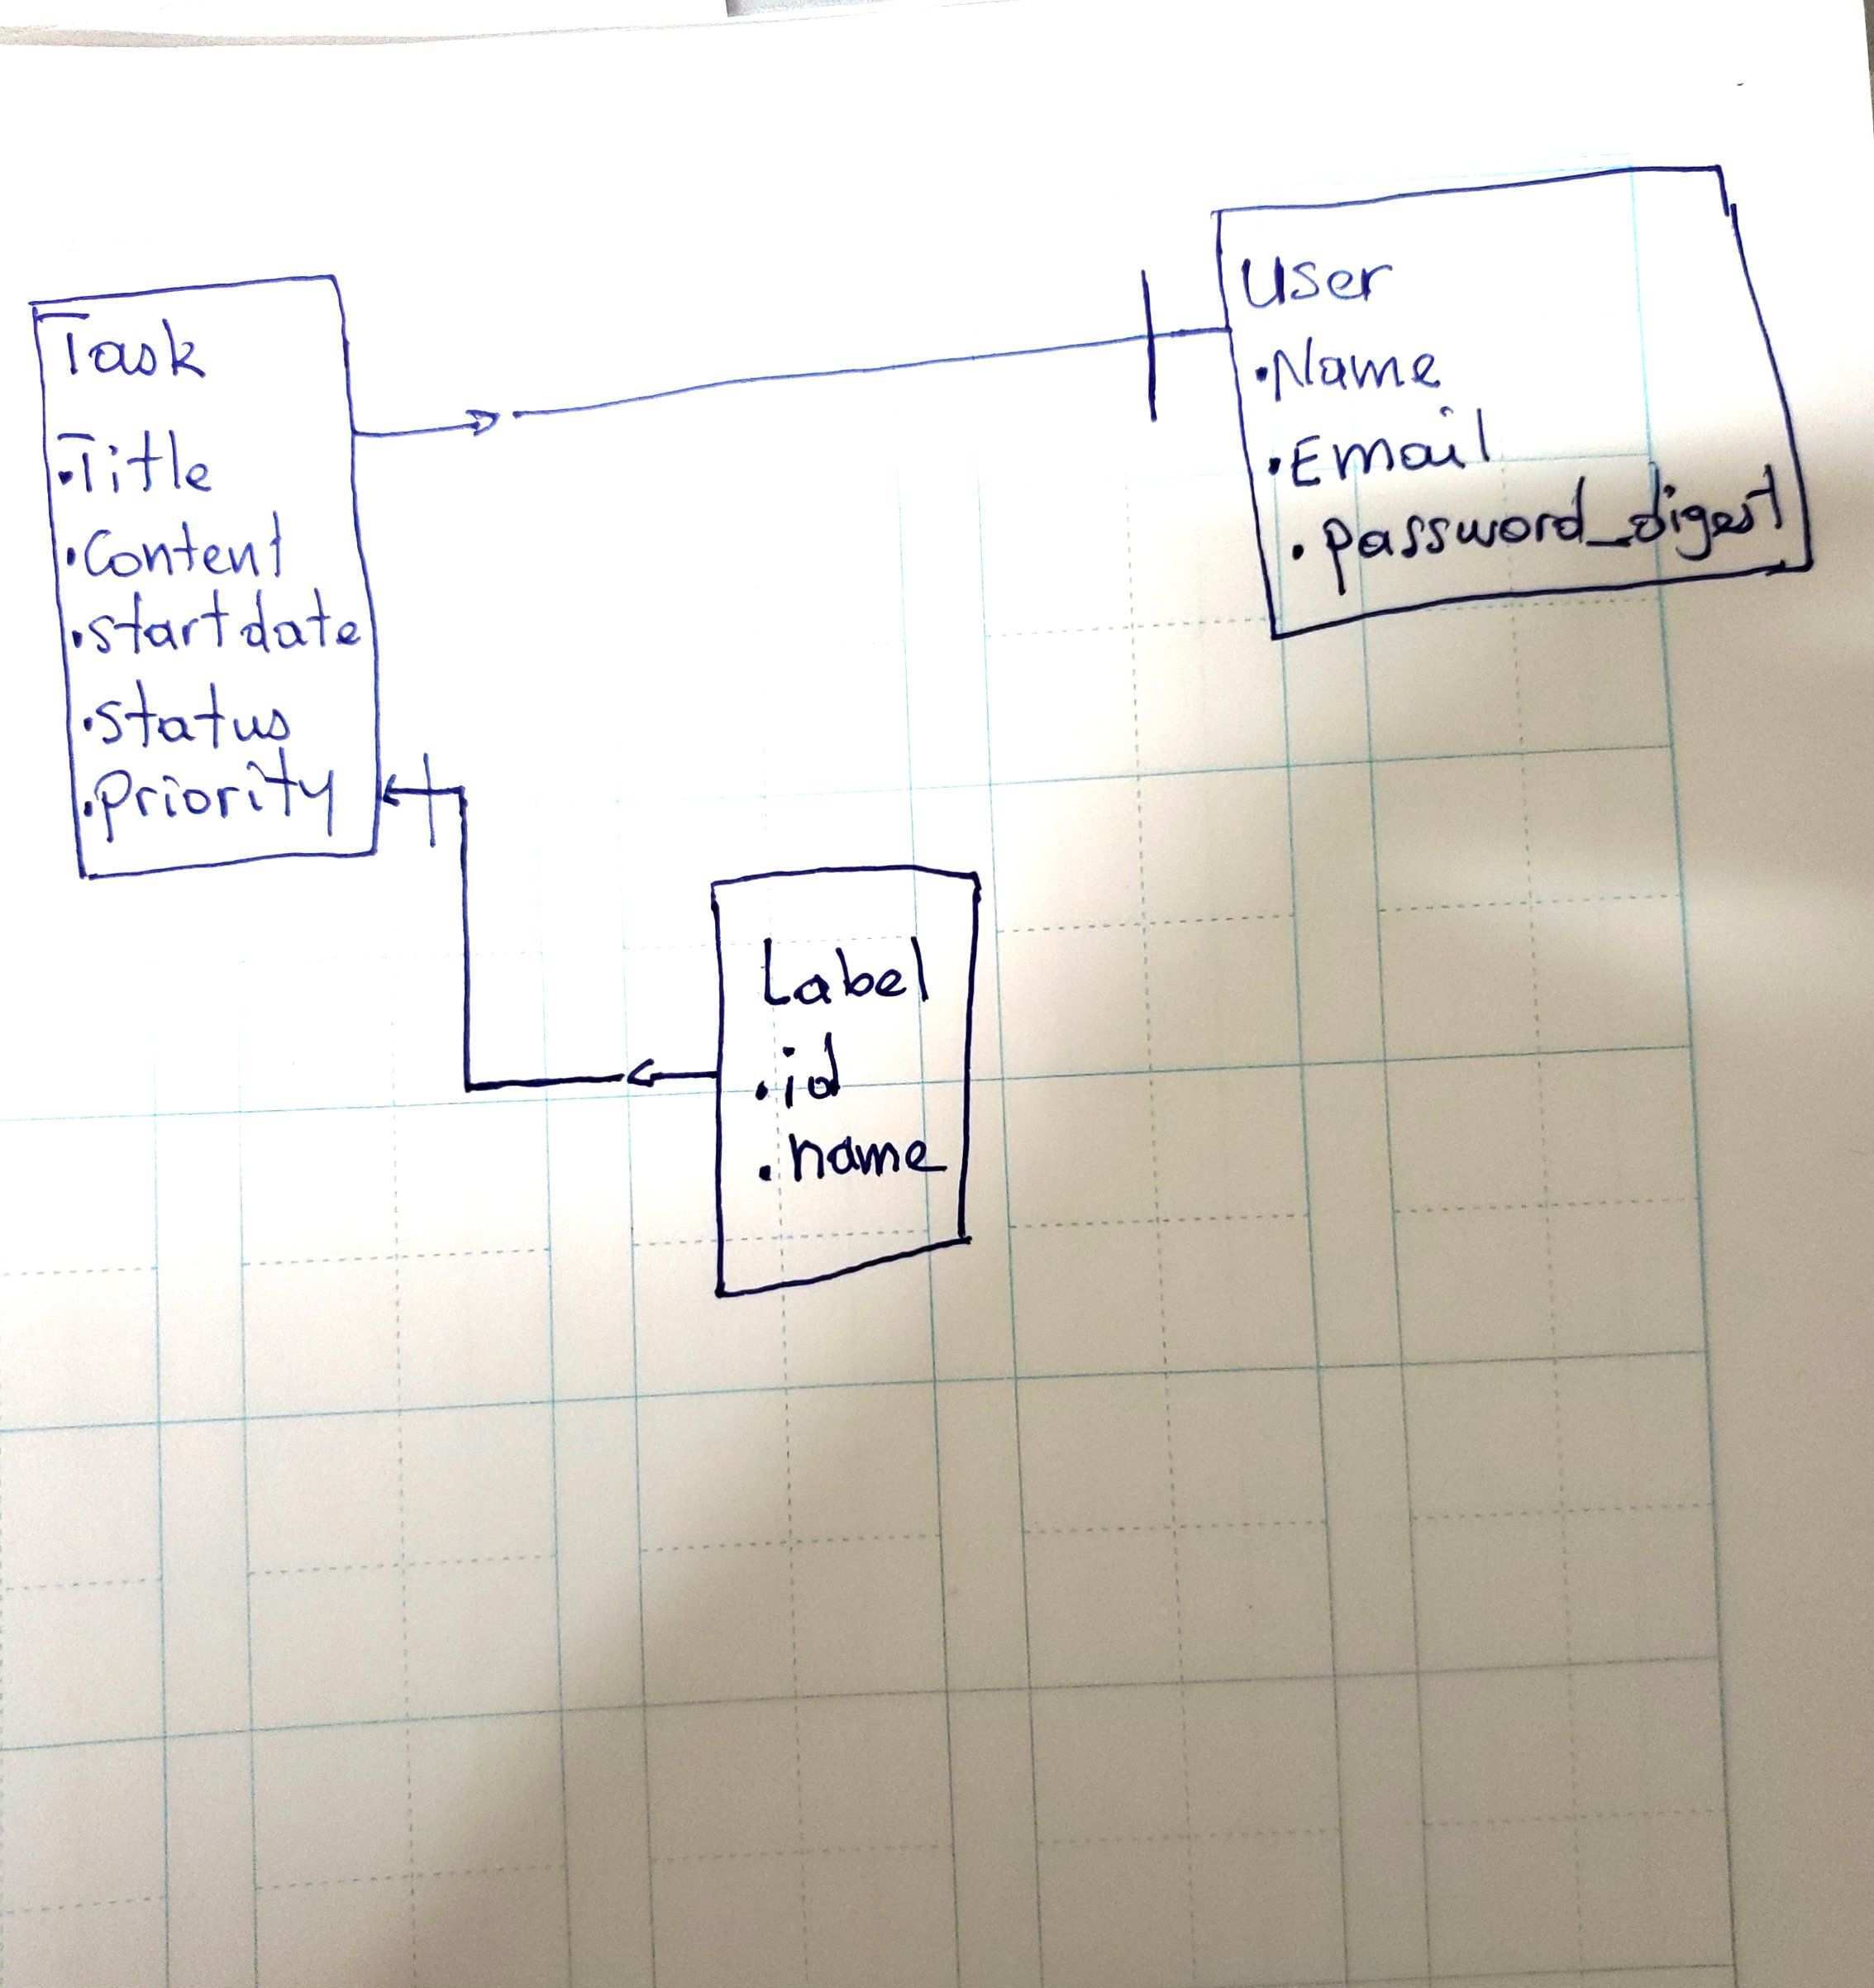 Task
•Title
•Content
•startdate
•status
•Priority
User
•Name
•Email
•password_digest
Label
•id
•name